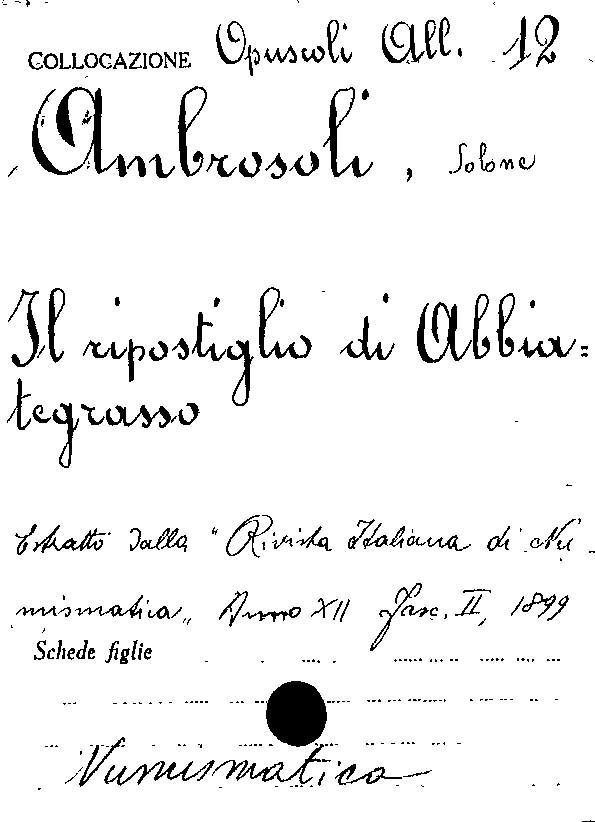 COLLOCAZIONE Opuscoli All. 12
Ambrosoli, Solone
Il ripostiglio di Abbia=
tegrasso
Estratto dalla "Rivista Italiana di Nu-
mismatica„ Anno XII Fasc. II, 1899
Schede figlie
Numismatica